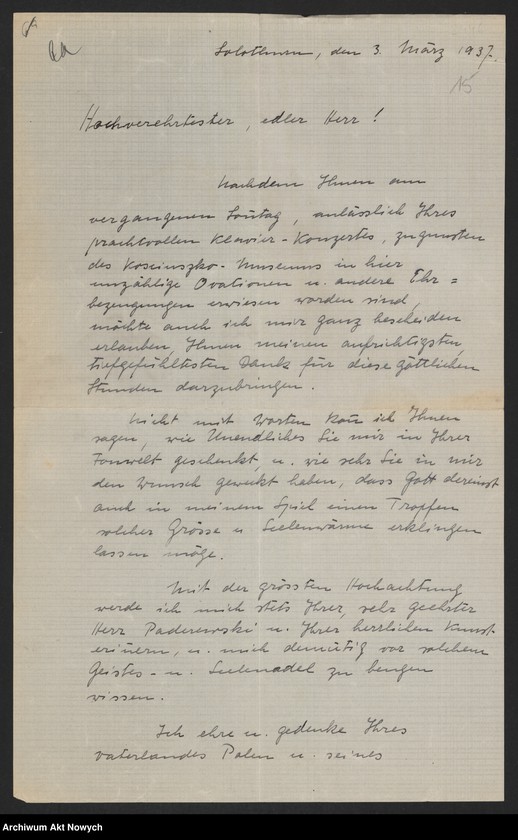 Solothurn, den 3. März 1937.
15
Hochverehrtester, edler Herr!
Nachdem Ihnen am
vergangenen Sontag, anlässlich Ihres
prachtvollen Klavier-Konzertes, zugunsten
des Kosciuszko-Museums in hier
unzählige Ovationen u. andere Ehr=
bezeugungen erwiesen worden sind,
möchte auch ich mir ganz bescheiden
erlauben, Ihnen meinen aufrichtigsten,
tiefgefühltesten Dank für diese göttlichen
Stunden darzubringen.
Nicht mit Worten kan̄ ich Ihnen
sagen, wie Unendliches Sie mir in Ihrer
Tonwelt geschenkt, u. wie sehr Sie in mir
den Wunsch geweckt haben, dass Gott dereinst
auch in meinem Spiel einen Tropfen
solcher Grösse u. Seelenwärme erklingen
lassen möge.
Mit der grössten Hochachtung
werde ich mich stets Ihrer, sehr geehrter
Herr Paderewski u. Ihrer herrlichen Kunst
erin̄ern, u. mich demütig vor solchem
Geistes- u. Seelenadel zu beugen
wissen.
Ich ehre u. gedenke Ihres
Vaterlandes Polen u. seines
Archiwum Akt Nowych